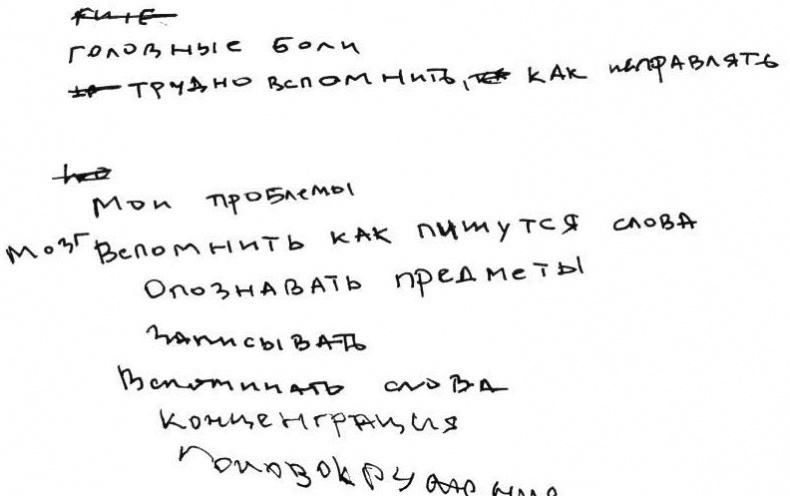 головные боли
трудно вспомнить, как исправлять
Мои проблемы
мозг Вспомнить как пишутся слова
Опознавать предметы
Записывать
Вспоминать слова
Концентрация